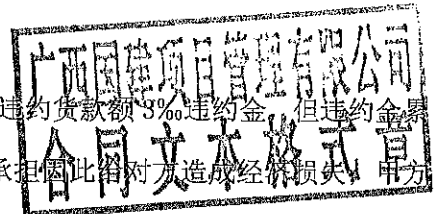 广西国建项目管理有限公司
违约货款额 3‰违约金，但违约金累
合同文本格式章
承担因此给对方造成经济损失，甲方